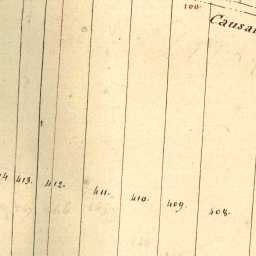 100
Causa
14 413. 412. 411. 410. 409. 408.